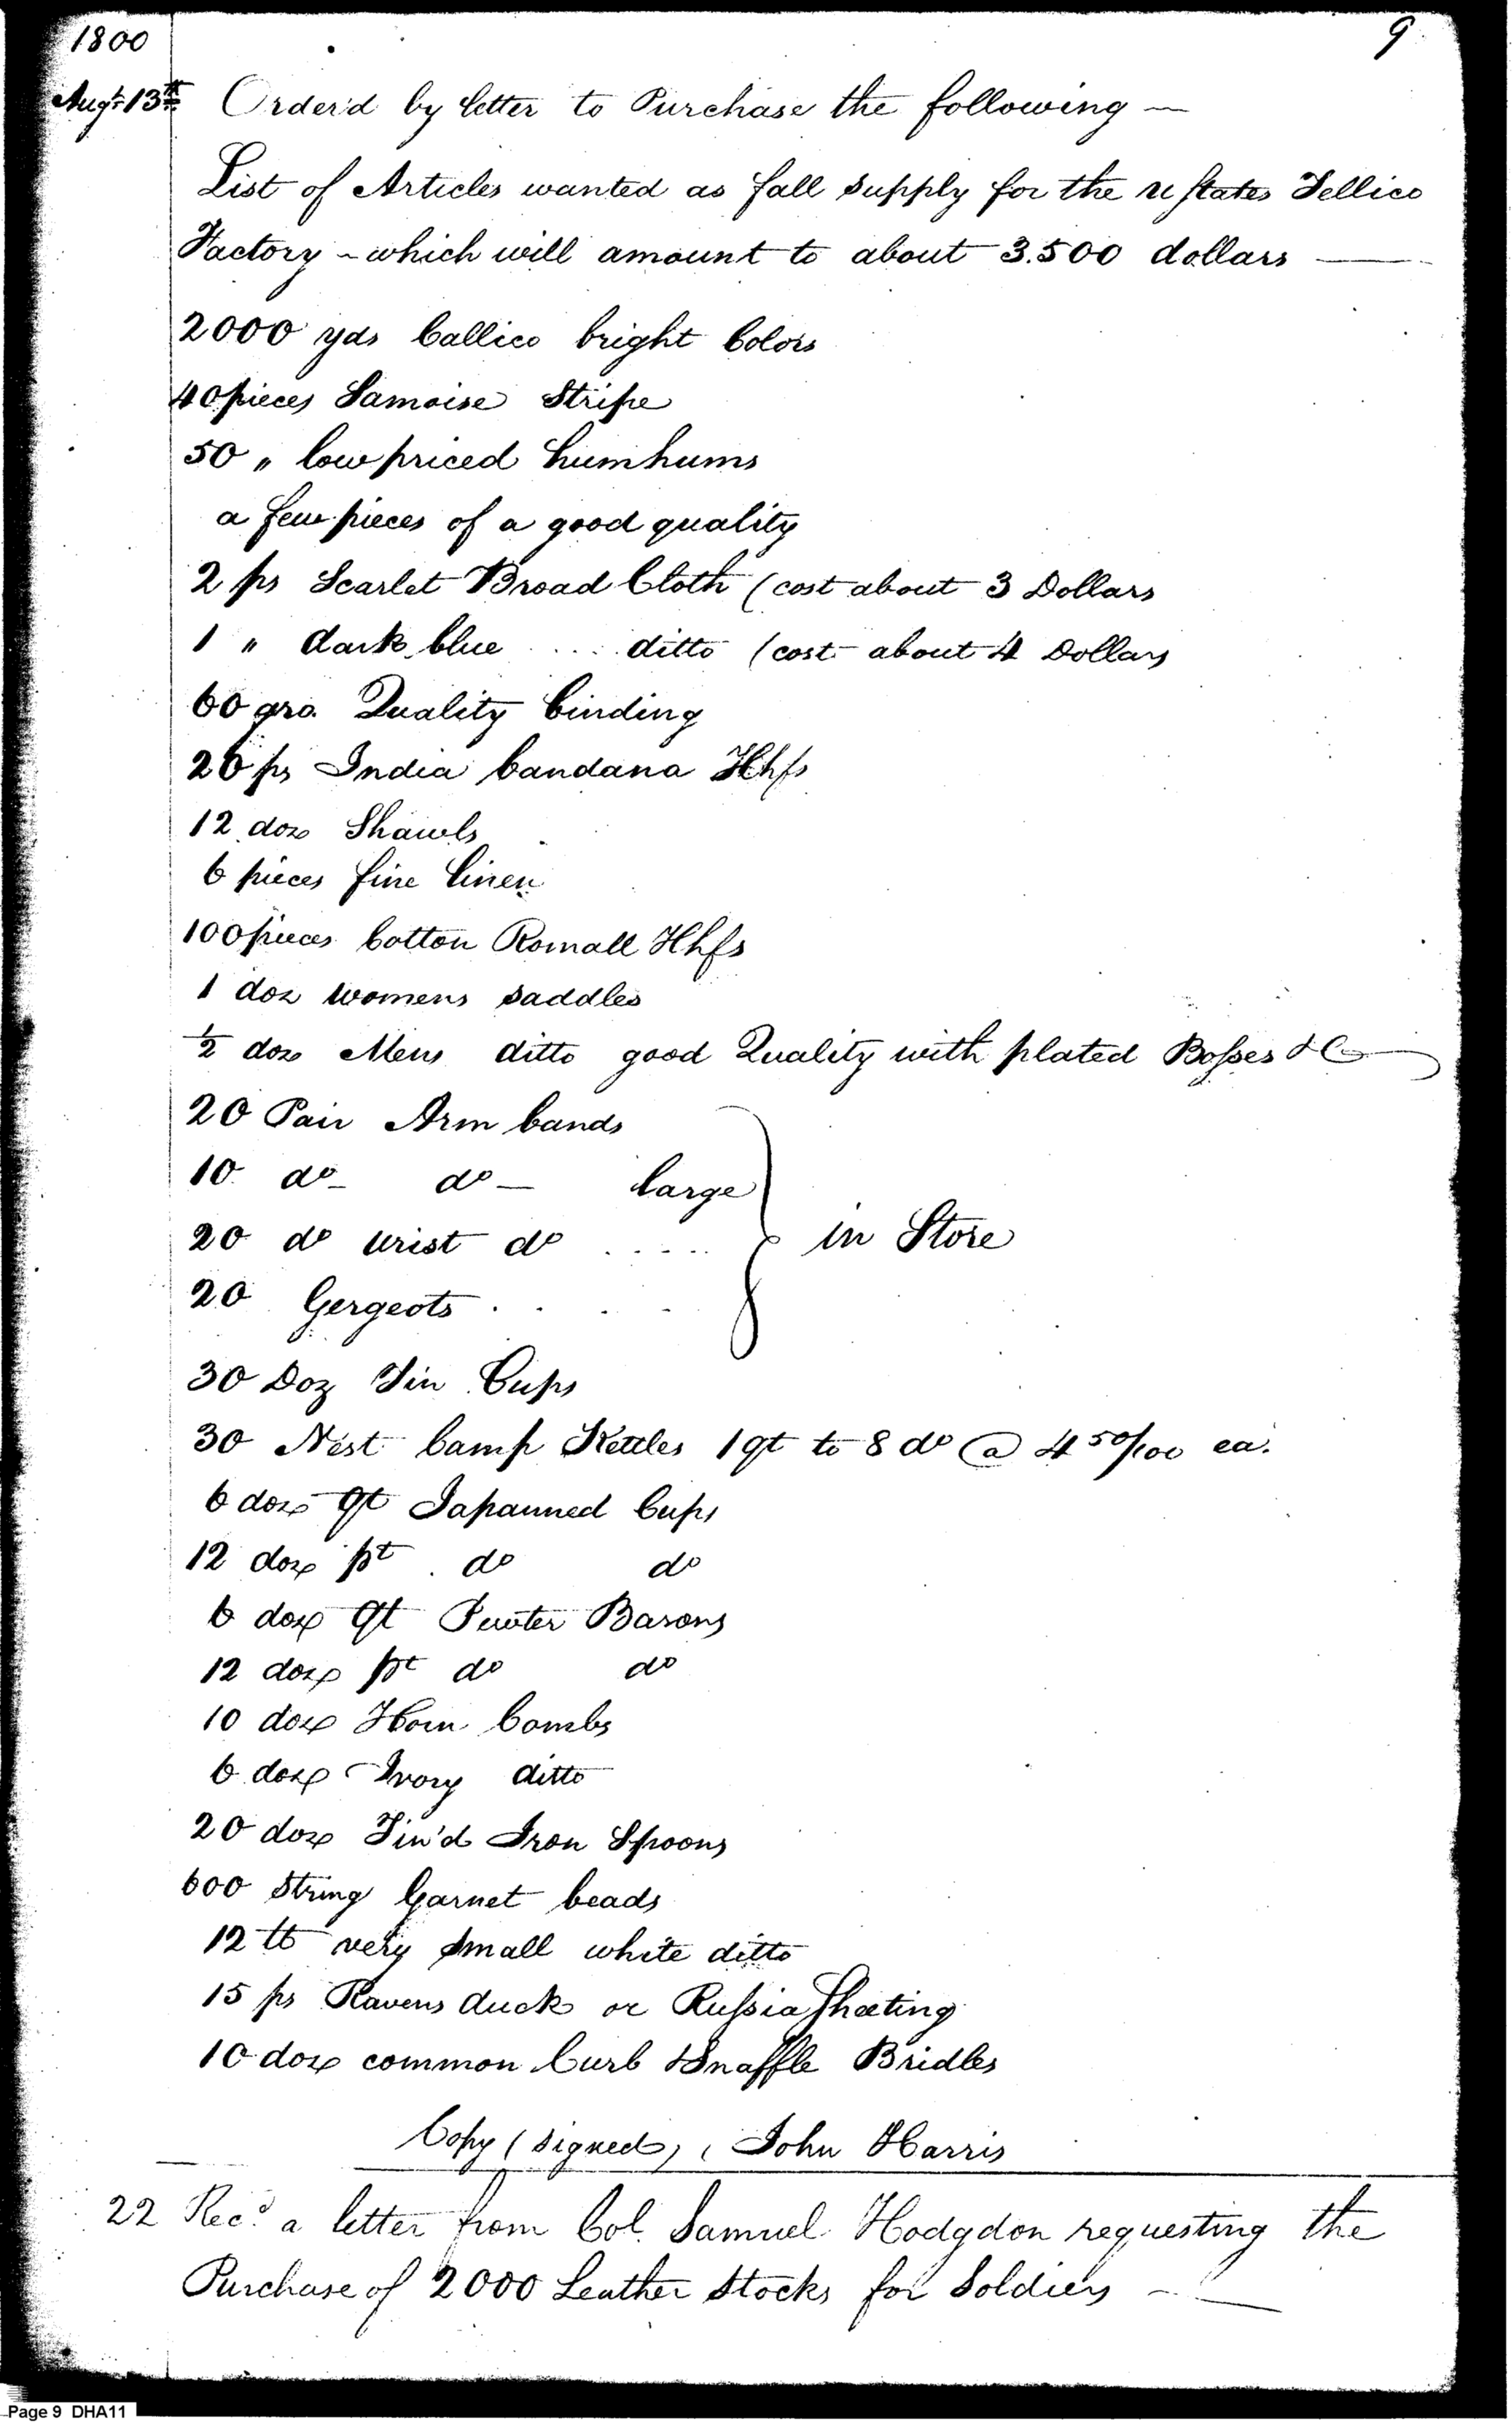 1800
9
Augt. 13th Order'd by letter to Purchase the following —
List of Articles wanted as fall supply for the u States Tellico
Factory - which will amount to about 3.500 dollars ——
2000 yds Callico bright Colors
40 pieces Samoise Stripe
50 " low priced humhums
a few pieces of a good quality
2 ps Scarlet Broad Cloth (cost about 3 Dollars
1 " dark blue .... ditto (cost about 4 Dollars
60 gro. Quality binding
20 ps India bandana Hhfs
12 doz Shawls
6 pieces fine linen
100 pieces Cotton Romall Hhfs
1 doz womens saddles
½ doz Mens ditto good Quality with plated Bosses &C
20 Pair Arm bands
10 do - do - large
20 do wrist do ..... } in Store
20 Gergeots . . . .
30 Doz Tin Cups
30 Nest Camp Kettles 1 qt to 8 do @ 4 50/100 ea.
6 doz qt Japanned Cups
12 doz pt do do
6 doz qt Pewter Basons
12 doz pt do do
10 doz Horn Combs
6 doz Ivory ditto
20 doz Tin'd Iron Spoons
600 String Garnet beads
12 lb very small white ditto
15 ps Ravens duck or Russia Sheeting
10 doz common Curb & Snaffle Bridles
Copy (signed) John Harris
22 Recd. a letter from Col. Samuel Hodgdon requesting the
Purchase of 2000 Leather Stocks for Soldiers —
Page 9 DHA11